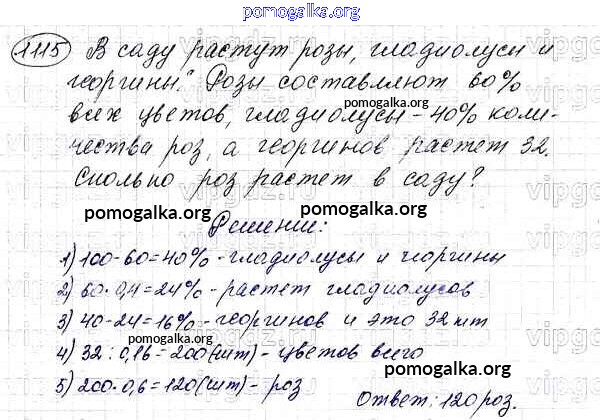 pomogalka.org
1115 В саду растут розы, гладиолусы и
георгины. Розы составляют 60%
всех цветов, гладиолусы - 40% коли-
pomogalka.org
чества роз, а георгинов растет 32.
Сколько роз растет в саду?
pomogalka.org
pomogalka.org
Решение:
1) 100-60=40% - гладиолусы и георгины
2) 60·0,4=24% - растет гладиолусов
3) 40-24=16% - георгинов и это 32 шт
4) 32:0,16=200(шт) - цветов всего
5) 200·0,6=120(шт) - роз
Ответ: 120 роз.